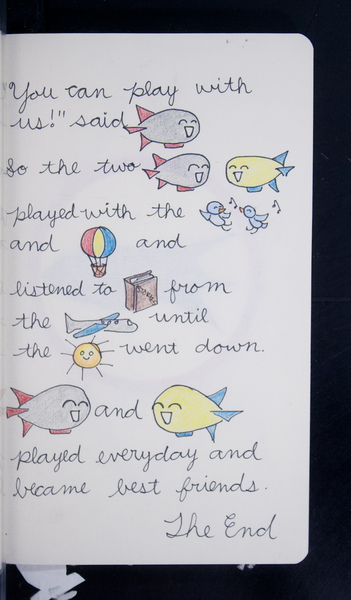 "You can play with
us!" said
So the two
played with the
and and
listened to from
the until
the went down.
and
played everyday and
became best friends.
The End